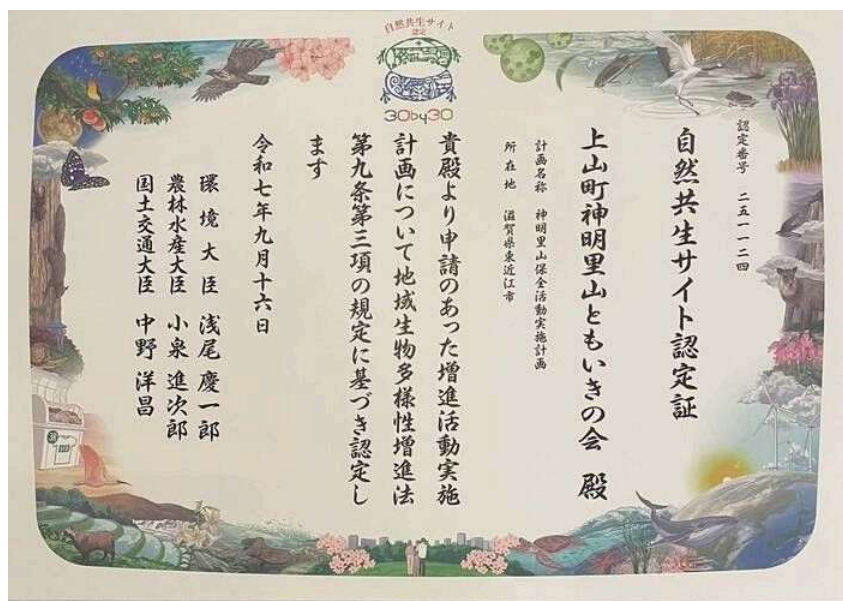 自然共生サイト
認定
30by30
認定番号 二五ー一ー二四
自然共生サイト認定証
上山町神明里山ともいきの会 殿
計画名称 神明里山保全活動実施計画
所在地 滋賀県東近江市
貴殿より申請のあった増進活動実施
計画について地域生物多様性増進法
第九条第三項の規定に基づき認定し
ます
令和七年九月十六日
環境大臣 浅尾 慶一郎
農林水産大臣 小泉 進次郎
国土交通大臣 中野 洋昌